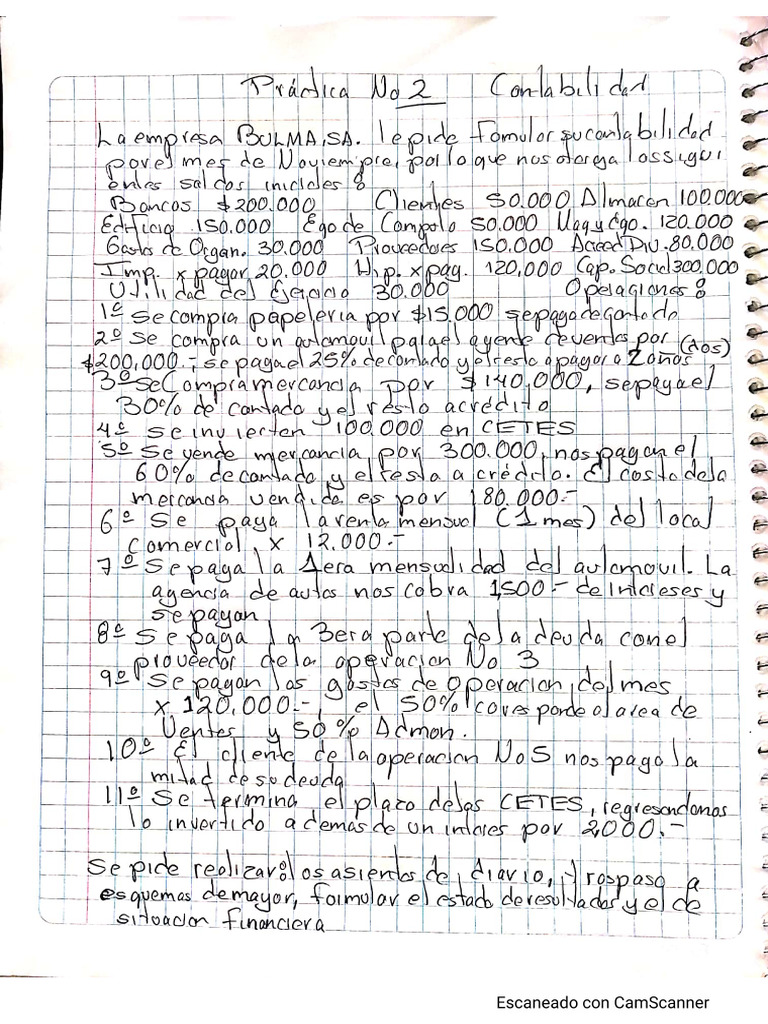 Práctica No 2 Contabilidad
La empresa BULMA, SA. le pide fomular su contabilidad
por el mes de Noviempre, por lo que nos otorga los sigui
entes saldos iniciales :
Bancos $200.000 Clientes 50.000 Almacen 100.000
Edificio 150.000 Eqo de Computo 50.000 Maq y Eqo. 120.000
Gastos de Organ. 30.000 Proveedores 150.000 Acreed Div. 80.000
Imp. x pagar 20.000 Hip. x pag. 120,000 Cap. Social 300.000
Utilidad del Ejercicio 30.000 Operaciones :
1º se compra papeleria por $15.000 se paga de contado
2º Se compra un automovil para el agente de ventas por
$200,000.-, se paga el 25% de contado y el resto a pagar a 2 años (dos)
3º Se Compra mercancia por $140,000, se paga el
30% de contado y el resto acrédito
4º se invierten 100.000 en CETES
5º Se vende mercancia por 300.000, nos pagan el
60% de contado y el resto a crédito. El costo de la
mercancia vendida es por 180.000.-
6º Se paga la renta mensual (1 mes) del local
comercial x 12.000.-
7º Se paga la 1era mensualidad del automovil. La
agencia de autos nos cobra 1,500.- de intereses y
se pagan
8º Se paga la 3era parte de la deuda con el
proveedor de la operacion No 3
9º Se pagan los gastos de operacion del mes
x 120,000.-, el 50% corresponde al area de
Ventas y 50% Admon.
10º El cliente de la operacion No 5 nos pago la
mitad de su deuda
11º Se termina el plazo de las CETES, regresandonos
lo invertido ademas de un interes por 2,000.-
Se pide realizar: los asientos de diario, traspaso a
esquemas de mayor, formular el estado de resultados y el de
situacion financiera
Escaneado con CamScanner